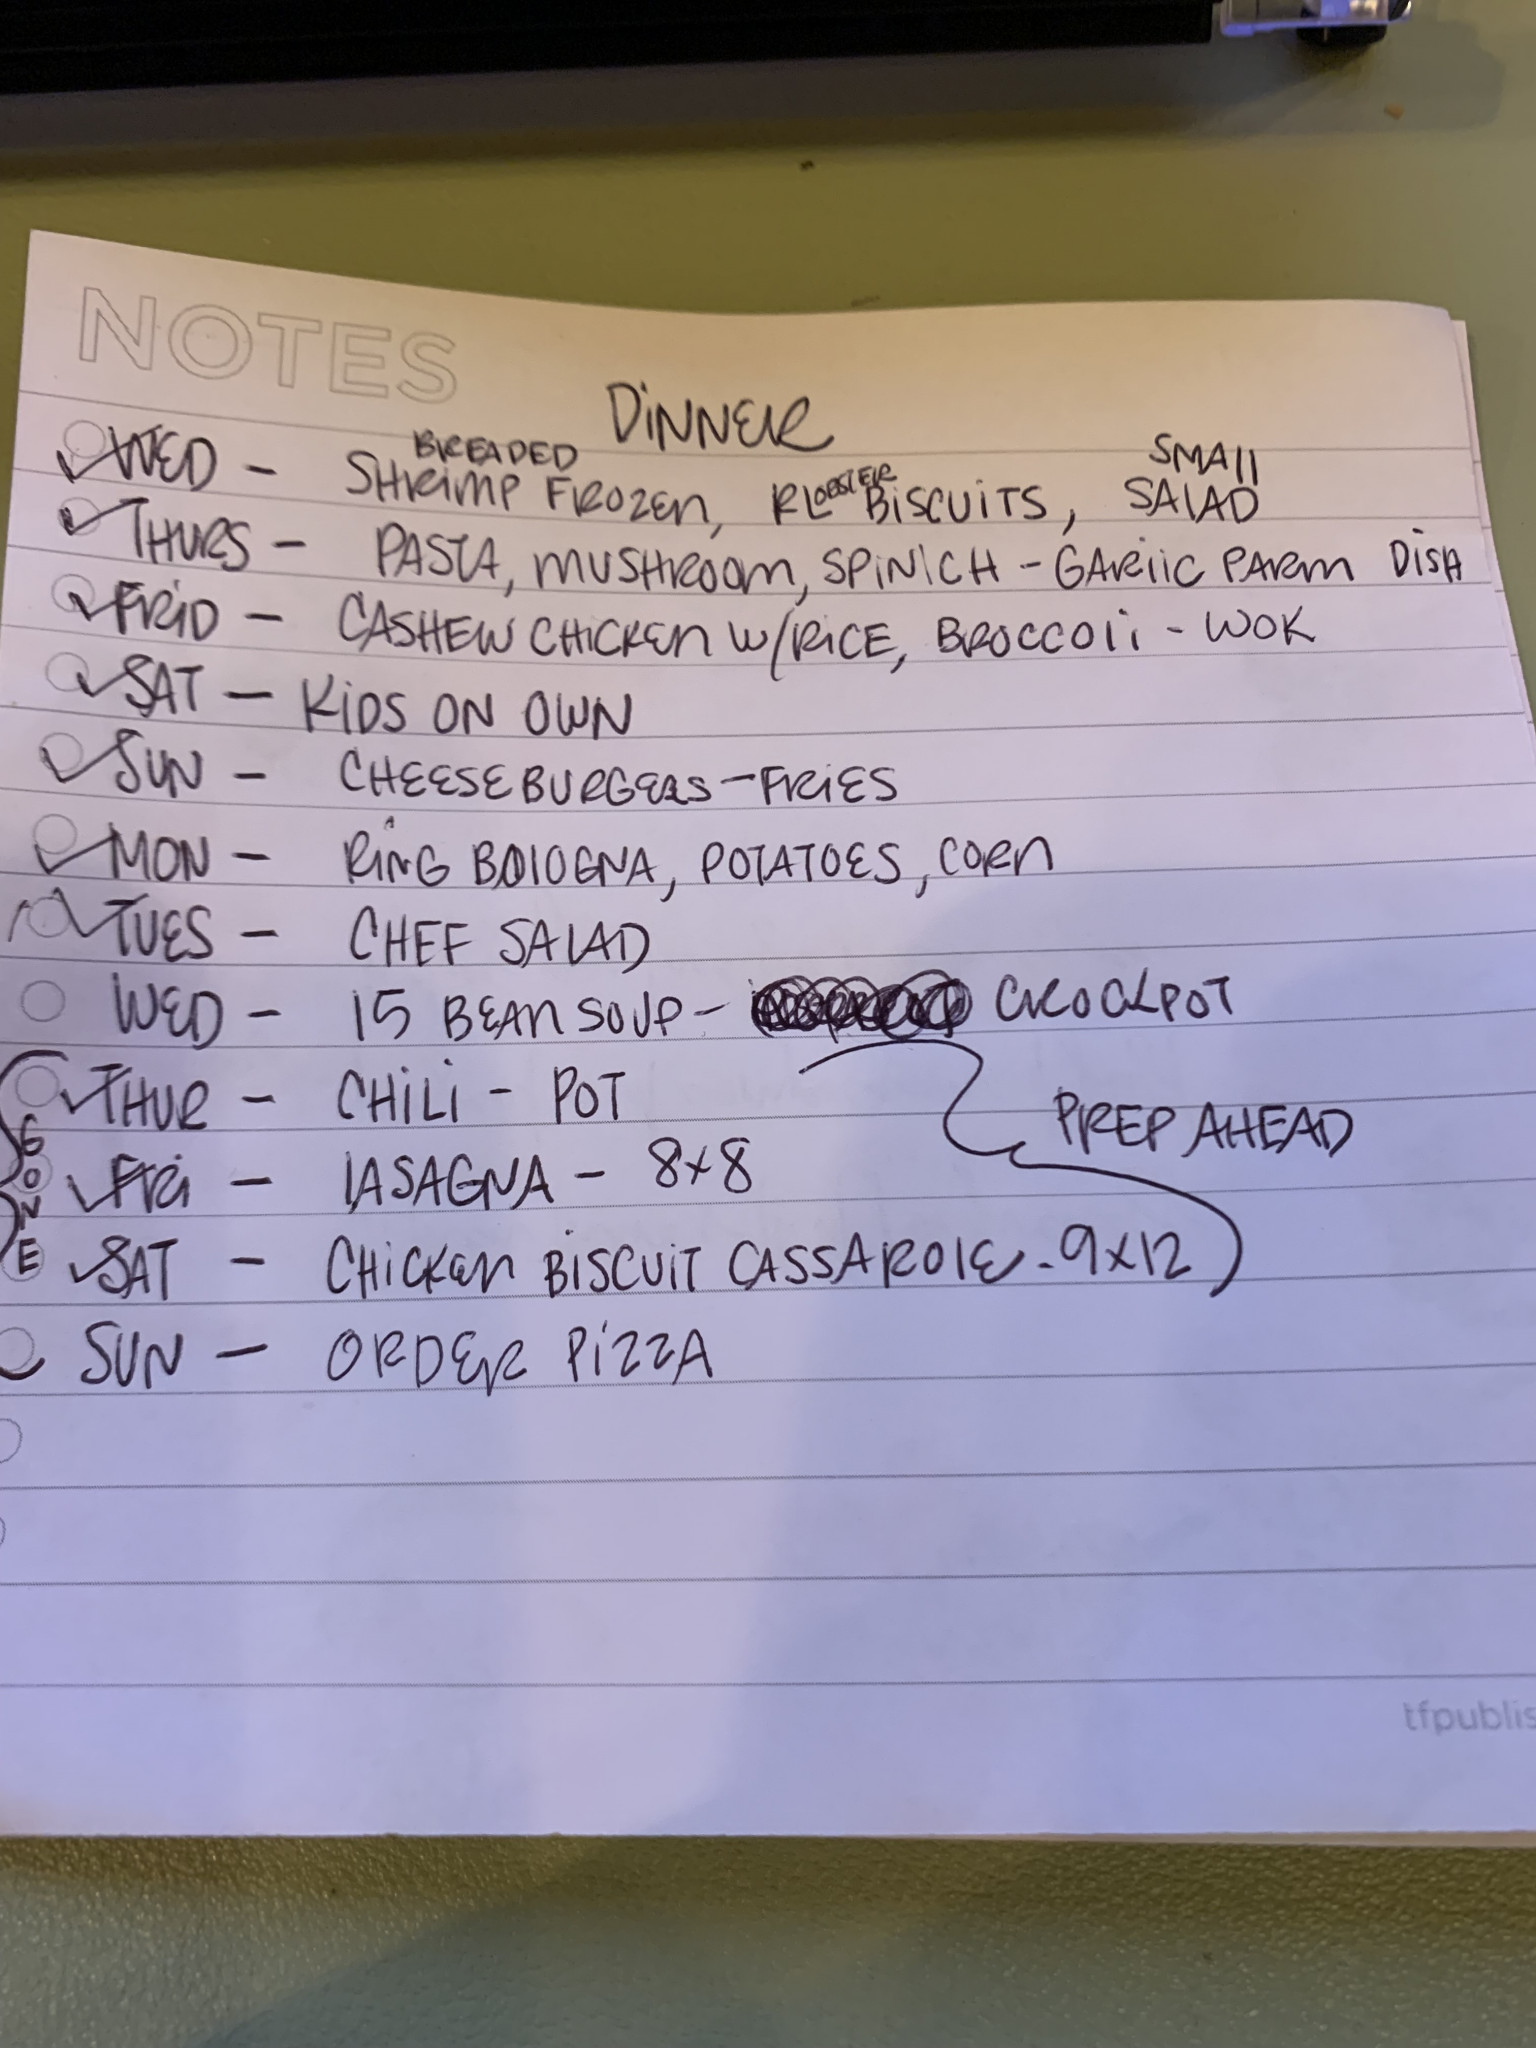 NOTES
DINNER
WED - BREADED SHRIMP FROZEN, RLOBSTER BISCUITS, SMALL SALAD
THURS - PASTA, MUSHROOM, SPINICH - GARLIC PARM DISH
FRID - CASHEW CHICKEN W/RICE, BROCCOLI - WOK
SAT - KIDS ON OWN
SUN - CHEESEBURGERS - FRIES
MON - RING BOLOGNA, POTATOES, CORN
TUES - CHEF SALAD
WED - 15 BEAN SOUP - CROCKPOT
THUR - CHILI - POT
PREP AHEAD
FRI - LASAGNA - 8x8
SAT - CHICKEN BISCUIT CASSAROLE - 9x12
GONE
SUN - ORDER PIZZA
tfpublis